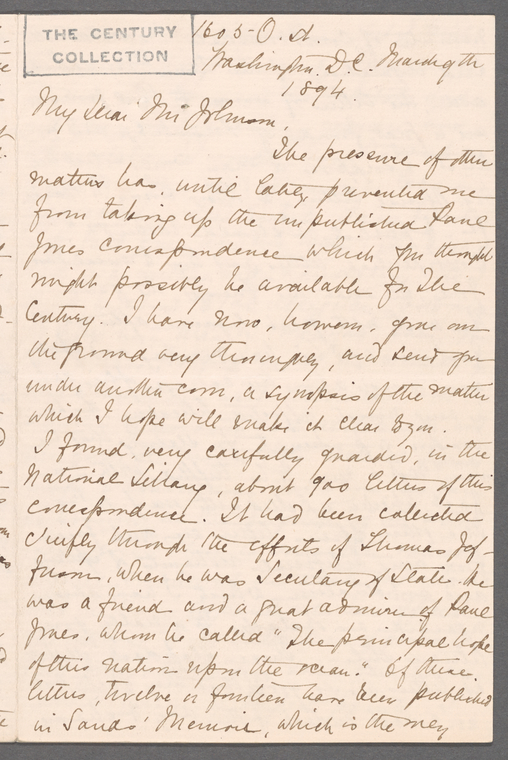 THE CENTURY
COLLECTION
1603-O. St.
Washington, D.C. March 9th
1894.
My dear Mr Johnson,
The pressure of other
matters has, until lately, prevented me
from taking up the unpublished Paul
Jones correspondence which you thought
might possibly be available for The
Century. I have now, however, gone over
the ground very thoroughly, and send you
under another cover, a synopsis of the matter
which I hope will make it clear to you.
I found, very carefully guarded, in the
National Library, about 900 letters of this
correspondence. It had been collected
chiefly through the efforts of Thomas Jef-
ferson, when he was Secretary of State. He
was a friend and a great admirer of Paul
Jones, whom he called "The principal hope
of this nation upon the ocean." Of these
letters, twelve or fourteen have been published
in Sands' Memoir, which is the